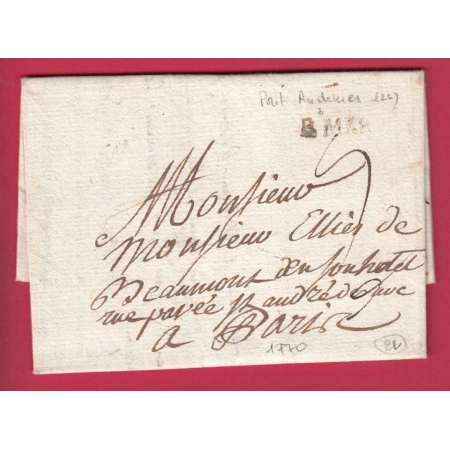 Pont Audemer
Monsieur
Monsieur Elliès de
Beaumont En son hotel
rue pavée St andré des arc
a Paris
1770
22